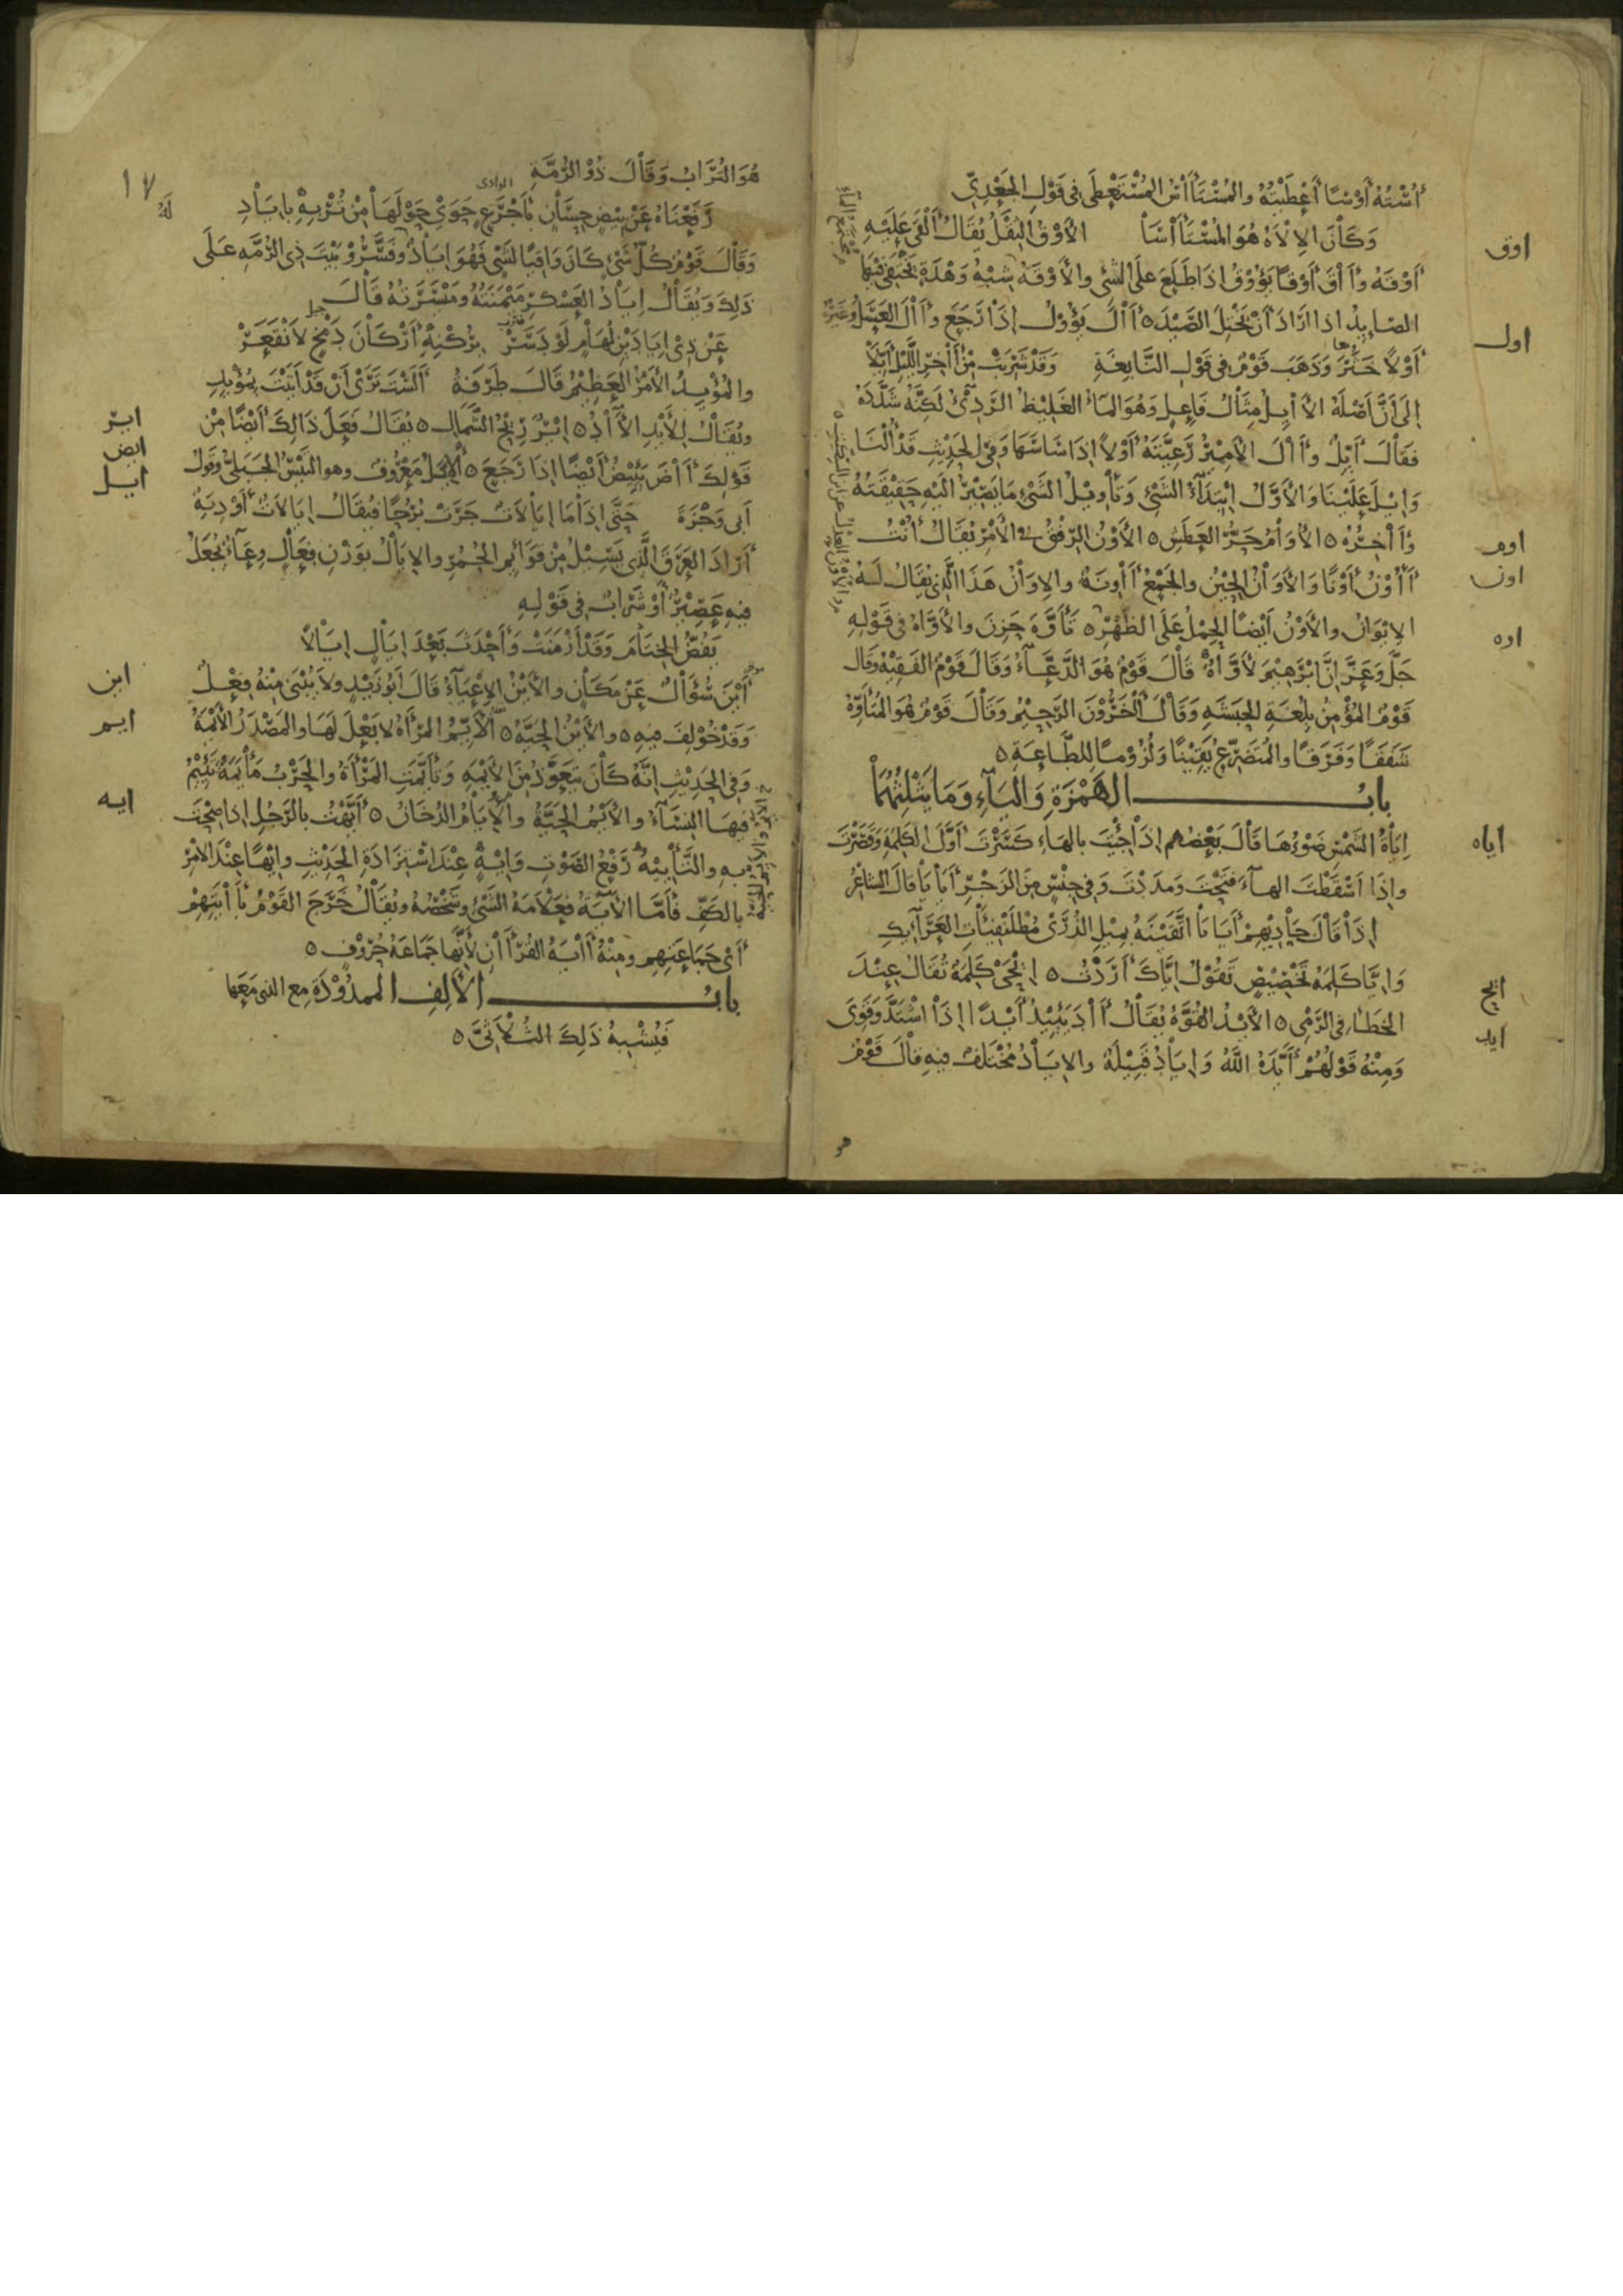 أُسْتُهُ أَوْسًا أَعْطَيْتُهُ والمُسْتَآسُ المُسْتَعْطَى في قَوْلِ الجَعْدِيّ
وَكَانَ الإِلَاهُ هُوَ المُسْتَآسَا الأَوْقُ الثِقَلُ يُقَالُ أَلْقَى عَلَيْهِ
اوق
أَوْقَهُ وآقَ أَوْقًا يَؤُوْقُ اذَا طَلَعَ عَلَى الشَّىْ والأُوْقَهُ شِبْهُ وَهْدَةٍ يَخْتَفِى فيْهَا
الصَّايِدُ اذا ارَادَ أَنْ يَخْتِلَ الصَّيْدَ ٥ آلَ يَؤُوْلُ إذَا رَجَع وآلَ العَسَلُ وَغَيْرُهُ
اول
أَوْلًا خَثُرَ وَذَهَبَ قَوْمٌ في قَوْلِ النَّابِغَةِ وَقَدْ شَرِبَتْ مِنْ آخِرِ اللَّيْلِ أُيَّلَا
إلَى أَنَّ أَصْلَهُ الآيِلُ مِثَالُ فَاعِلٍ وَهُوَ المَاءُ الغَلِيْظُ الرَّدِىْءُ لَكِنَّهُ شَدَّدَهُ
فقَالَ أُيَّلٌ وآلَ الأَمِيْرُ رَعِيَّتَهُ أَوْلًا إذَا سَاسَهَا وَفي الحَدِيْثِ قَدْ أُلْنَا
وَإيْلَ عَلَيْنَا وَالأَوَّلُ ابْتِدَآءُ الشَّىْءِ وَتَأْوِيْلُ الشَّىْءِ مَا يَصِيْرُ الَيْهِ حَقِيْقَتُهُ
وَآخِرُهُ ٥ الأُوَامُ حَرُّ العَطَشِ ٥ الأَوْنُ الرِّفْقُ في الأَمْرِ يُقَالُ أُنْتُ
اوم
أَؤُوْنُ أَوْنًا وَالأَوَانُ الحِيْنُ والجَمْعُ آوِنَهُ والإوَانُ هَذَا الَّذِي يُقَالُ لَهُ
اون
الايْوَانُ والأَوْنُ أَيْضًا الحِمْلُ عَلَى الظَهْرِ ٥ تَأَوَّهَ حَزِنَ والأَوَّاهُ في قَوْلِهِ
اوه
جَلَّ وَعَزَّ إنَّ ابْرَهِيْمَ لَأَوَّاهٌ قَالَ قَوْمٌ هُوَ الدَّعَّآءُ وَقَالَ قَوْمٌ الفَقِيْهُ وَقَالَ
قَوْمٌ المُؤْمِنُ بِلُغَةِ الحَبَشَهِ وَقَالَ آخَرُوْنَ الرَّحِيْمُ وَقَالَ قَوْمٌ هُوَ المُتَأَوِّهُ
شَفَقًا وَفَرَقًا والمُتَضَرِّعُ يَقِيْنًا وَلُزُوْمًا لِلطَّاعَةِ ٥
بابُ الهَمْزَةِ وَاليَآءِ وَمَا يَثْلِثُهُمَا
إيَاةُ الشَّمْسِ ضَوْءُهَا قَالَ بَعْضُهُم إذَا جِئْتَ بالهَاءِ كَسَرْتَ أَوَّلَ الكَلِمَةِ وَقَصَرْتَ
اياه
وإذَا أَسْقَطْتَ الهآءَ فَتَحْتَ وَمَدَدْتَ وَفي جِنْسٍ مِنَ الزَّجْرِ أَيَايَا قَالَ الشاعِرُ
إذَا قَالَ حَادِيْهِمْ أَيَايَا اتَّقَيْنَهُ بِمِثْلِ الذُّرَى مُطْلَنْفِئَاتِ العَرَآئِكِ
وَإيَّا كَلِمَهُ تَخْصِيْصٍ تَقُوْلُ إيَّاكَ أَرَدْتُ ٥ إيْحَى كَلِمَةٌ تُقَالُ عِنْدَ
ايح
الخَطَاءِ في الرَّمْىِ ٥ الأَيْدُ القُوَّةُ يُقَالُ آدَ يَئِيْدُ أَيْدًا إذَا اشْتَدَّ وَقَوِىَ
ايد
وَمِنْهُ قَوْلُهُمْ أَيَّدَهُ اللَّهُ وَإيَادٌ قَبِيْلَهُ والإيَادُ مُخْتَلَفٌ فيهِ قالَ قَوْمٌ
هو
١٧
هُوَ التُرَابُ وَقَالَ ذُوْ الرُّمَّةِ
رَفَعْنَاهُ عَنْ بِيْضٍ حِسَانٍ بأَجْرَعٍ حَوَى حَوْلَهَا مِنْ تُرْبِهِ بإيَادِ
الوادى
وَقَالَ قَوْمٌ كُلُّ شَىْءٍ كَانَ وَاقِيًا لشَىْ فَهُوَ إيَادٌ وَفَسَّرُوْ بَيْتَ ذِي الرُّمَّهِ عَلَى
ذَلِكَ وَيُقَالُ ايَادُ العَسْكَرِ مَيْمَنَتُهُ ومَيْسَرَتُهُ قَالَ
عَنْ ذِي إيَادَيْنِ لُهَامٍ لَوْ دَسَرْ بِرُكْنِهِ أَرْكَانَ دَمْخٍ لَانْقَعَرْ
والمُؤْيِدُ الأَمْرُ العَظِيْمُ قَالَ طَرَفَهُ أَلَسْتَ تَرَى أَنْ قَدْ أَتَيْتَ بِمُؤْيِدِ
ويُقَالُ لِلأَيْدِ الآدُ ٥ إيْرٌ رِيْحُ الشَّمَالِ ٥ يُقَالُ فَعَلَ ذَلِكَ أَيْضًا مِنْ
ايرّ
قَوْلِكَ آضَ يَئِيْضُ أَيْضًا إذَا رَجَعَ ٥ الإيَّلُ مَعْرُوفٌ وهو التَيْسُ الجَبَلِىّ وقَوْلُ
ايض
ايل
أَبي وَجْزَةَ حَتَّى إذَا مَا إيَالَاتٌ جَرَتْ بُرُحًا فيُقَالُ إيَالَاتٌ أَوْدِيَهُ
أَرَادَ العَرَقَ الَّذِى يَسِيْلُ مِنْ قَوَآئِمِ الحُمُرِ والإيَالُ بِوَزْنِ فِعَالٍ وِعَآءٌ يُجْعَلُ
فيهِ عَصِيْرٌ أَوْ شَرَابٌ في قَوْلِهِ
يَفُضُّ الخِتَامَ وَقَدْ أَزْمَنَتْ وَأَحْدَثَ بَعْدَ إيَالٍ إيَالَا
أَيْنَ سُؤَالٌ عَنْ مَكَانٍ والأَيْنُ الإعْيَآءُ قَالَ أَبُو زَيْدٍ ولَا يُبْنَى مِنْهُ فِعْلٌ
اين
وَقَدْ خُوْلِفَ فيهِ ٥ والأَيْنُ الحَيَّهُ ٥ الأَيِّمُ المَرْأَةُ لَا بَعْلَ لَهَا والمَصْدَرُ الأَيْمَةُ
ايم
وَفي الحَدِيْثِ إنَّهُ كَانَ يَتَعَوَّذُ مِنَ الأَيْمَهِ وَتَأَيَّمَتِ المَرْأَةُ والحَرْبُ مَأْيَمَةٌ تَئِيْمُ
فيهَا النِسَآءُ والأَيْمُ الحَيَّةُ والإيَامُ الدُخَانُ ٥ أَيَّهْتُ بالرَّجُلِ اذا صِحْتَ
ايه
بهِ والتَّأْيِيْهُ رَفْعُ الصَوْتِ وَإيْهٍ عِنْدَ اسْتِزَادَةِ الحَدِيْثِ وإيْهًا عِنْدَ الأَمْرِ
بالكَفِّ فأَمَّا الآيَةُ فعَلَامَةُ الشَّىْءِ وشَخْصُهُ ويُقَالُ خَرَجَ القَوْمُ بآيَتِهِمْ
أَىْ جَمَاعَتِهِم ومِنْهُ آيَةُ القُرْآنِ لأَنَّها جَمَاعَةُ حُرُوْفٍ ٥
بابُ الألِفِ الممدُوْدَةِ مع الذي مَعَهَا
فيُشْبِهُ ذَلِكَ الثُلَاثِىَّ ٥